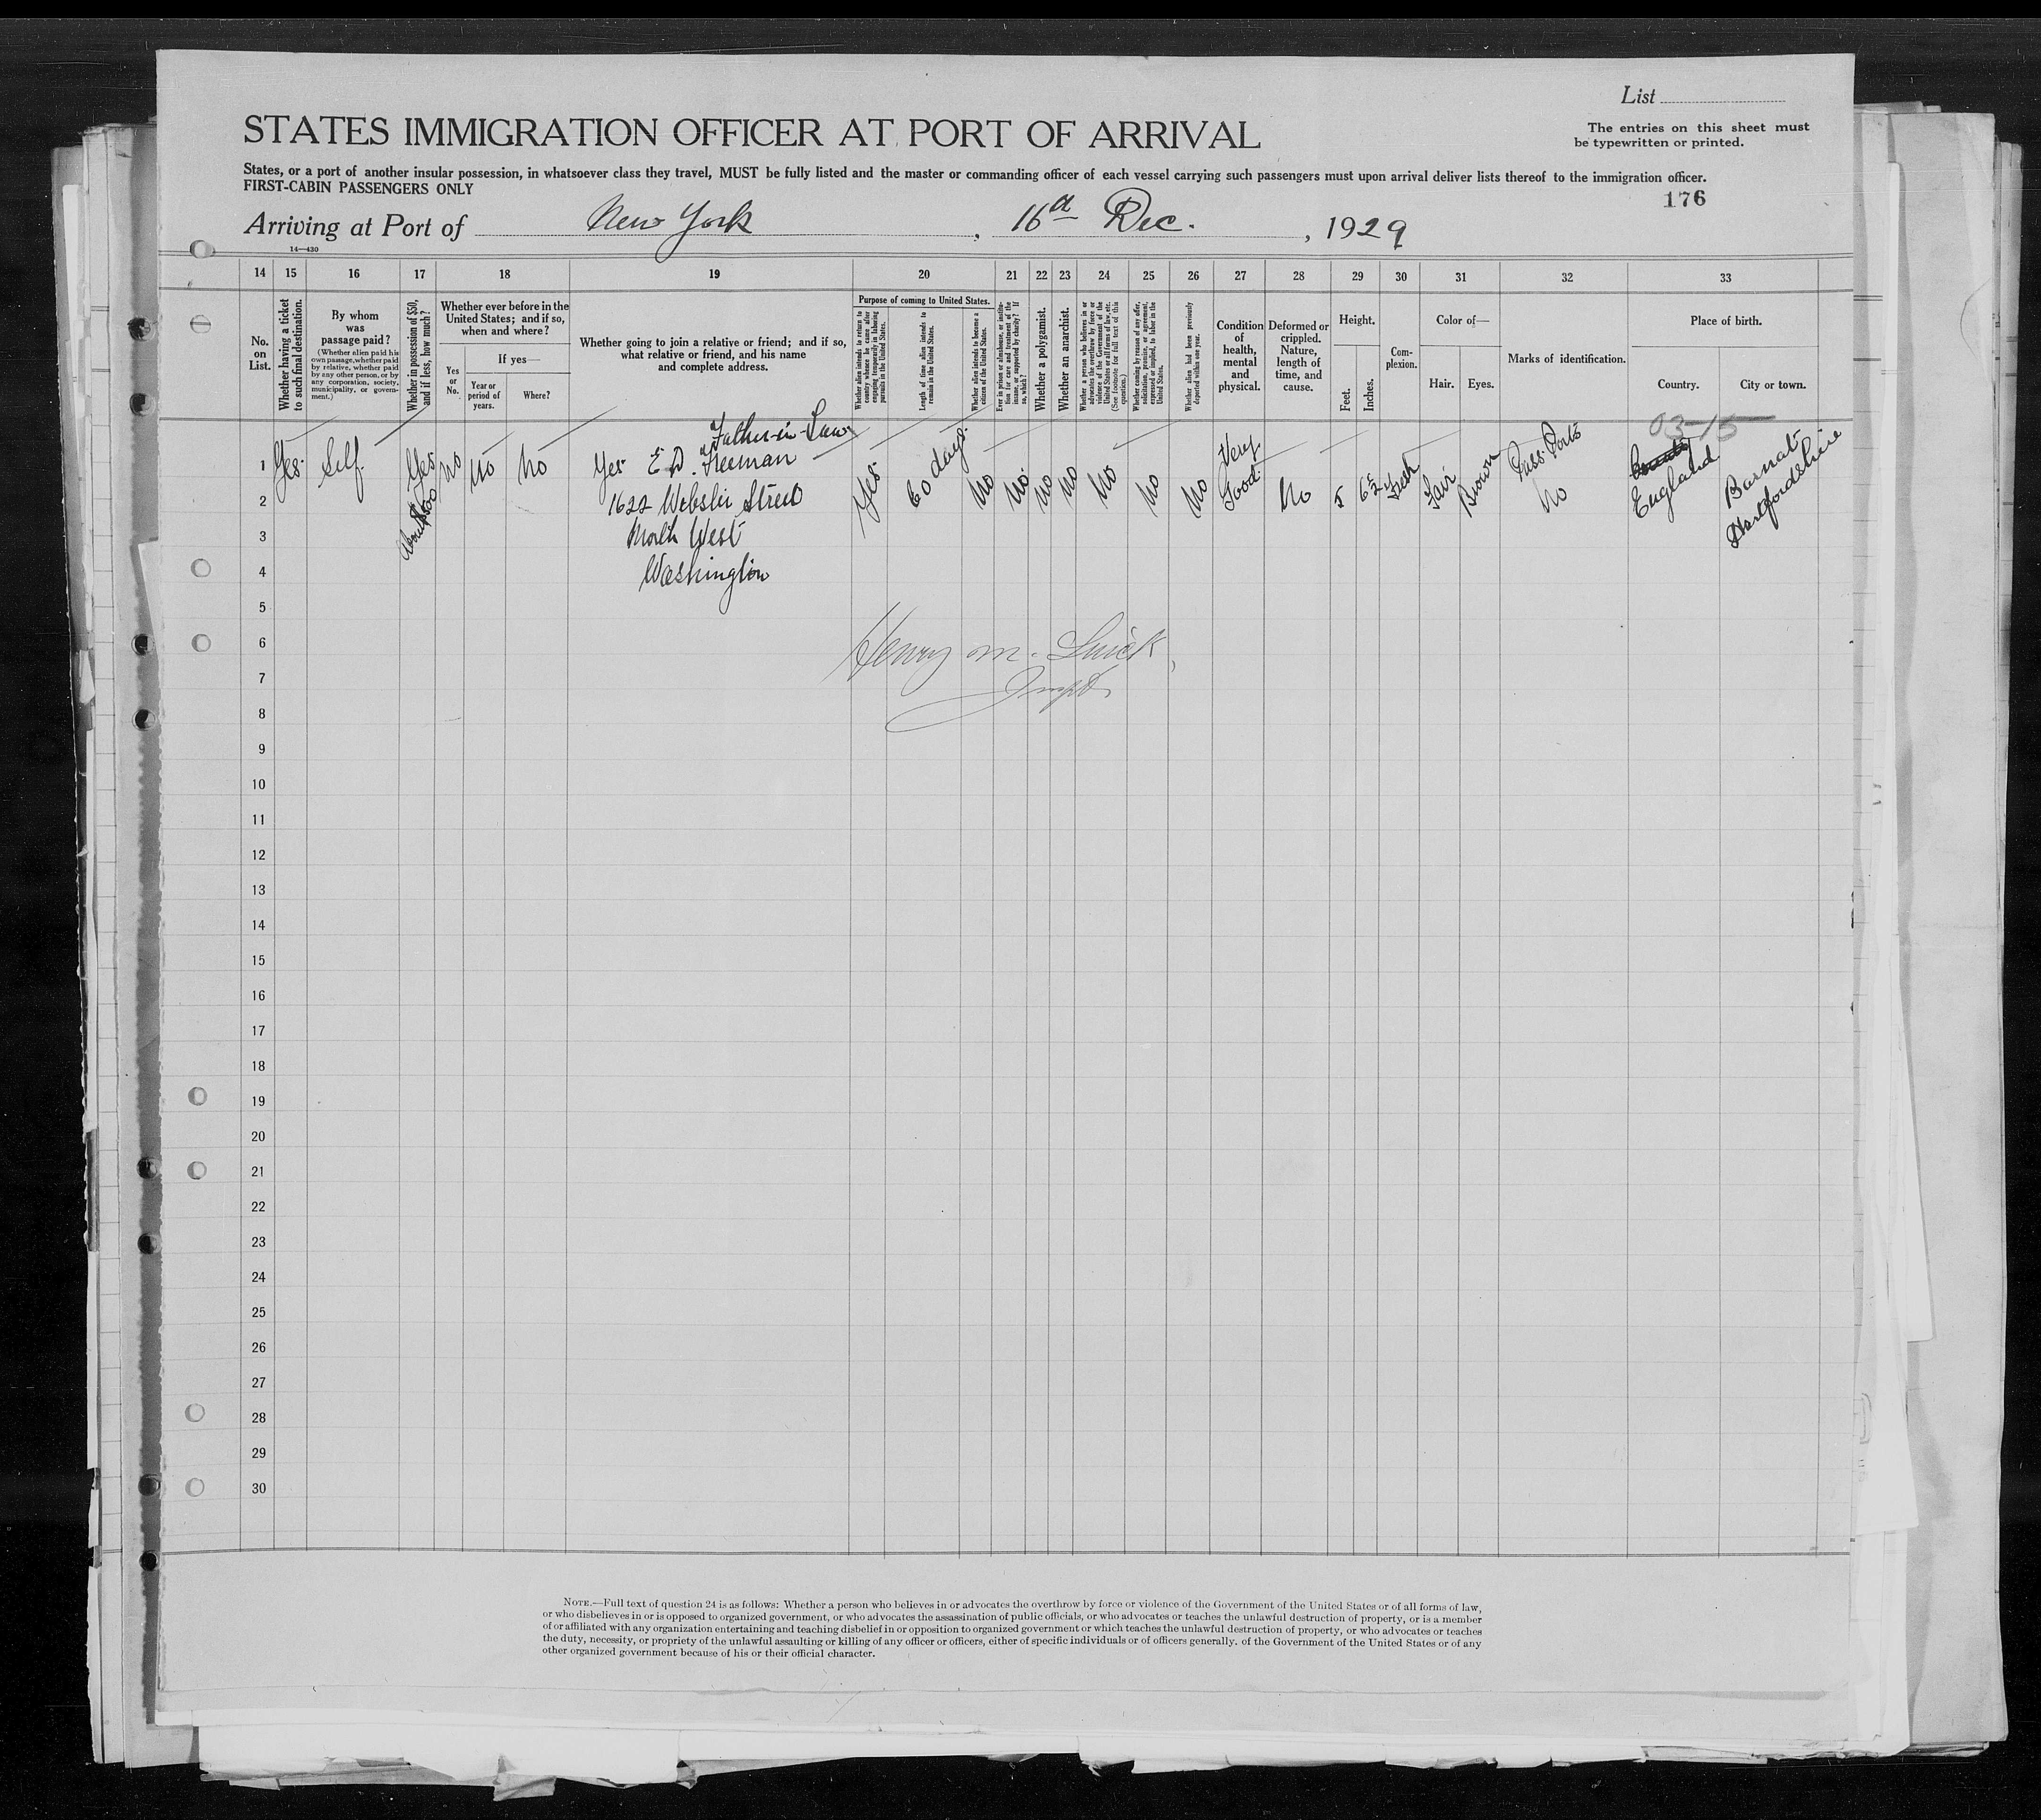 List
STATES IMMIGRATION OFFICER AT PORT OF ARRIVAL
The entries on this sheet must
be typewritten or printed.
States, or a port of another insular possession, in whatsoever class they travel, MUST be fully listed and the master or commanding officer of each vessel carrying such passengers must upon arrival deliver lists thereof to the immigration officer.
FIRST-CABIN PASSENGERS ONLY
176
Arriving at Port of New York, 16th Dec., 1929
14—430
14 15 16 17 18 19 20 21 22 23 24 25 26 27 28 29 30 31 32 33
No. on List.
Whether having a ticket to such final destination.
By whom was passage paid?
(Whether alien paid his own passage, whether paid by relative, whether paid by any other person, or by any corporation, society, municipality, or government.)
Whether in possession of $50, and if less, how much?
Whether ever before in the United States; and if so, when and where?
Yes or No.
If yes—
Year or period of years.
Where?
Whether going to join a relative or friend; and if so, what relative or friend, and his name and complete address.
Purpose of coming to United States.
Whether alien intends to return to country whence he came after engaging temporarily in laboring pursuits in the United States.
Length of time alien intends to remain in the United States.
Whether alien intends to become a citizen of the United States.
Ever in prison or almshouse, or institution for care and treatment of the insane, or supported by charity? If so, which?
Whether a polygamist.
Whether an anarchist.
Whether a person who believes in or advocates the overthrow by force or violence of the Government of the United States or all forms of law, etc. (See footnote for full text of this question.)
Whether coming by reason of any offer, solicitation, promise, or agreement, expressed or implied, to labor in the United States.
Whether alien had been previously deported within one year.
Condition of health, mental and physical.
Deformed or crippled. Nature, length of time, and cause.
Height.
Feet.
Inches.
Com-plexion.
Color of—
Hair.
Eyes.
Marks of identification.
Place of birth.
Country.
City or town.
03-15
Father-in-Law
1 Yes. Self. Yes No No No Yes E. D. Freeman Yes 60 days. No No. No No No No No Very Good. No 5 6½ Fresh Fair Brown Pass Ports No England Barnet Hertfordshire
2 1622 Webster Street
3 North West
4 Washington
5
6 Henry M.
7 Inspt.
8
9
10
11
12
13
14
15
16
17
18
19
20
21
22
23
24
25
26
27
28
29
30
NOTE.—Full text of question 24 is as follows: Whether a person who believes in or advocates the overthrow by force or violence of the Government of the United States or of all forms of law,
or who disbelieves in or is opposed to organized government, or who advocates the assassination of public officials, or who advocates or teaches the unlawful destruction of property, or is a member
of or affiliated with any organization entertaining and teaching disbelief in or opposition to organized government or which teaches the unlawful destruction of property, or who advocates or teaches
the duty, necessity, or propriety of the unlawful assaulting or killing of any officer or officers, either of specific individuals or of officers generally. of the Government of the United States or of any
other organized government because of his or their official character.